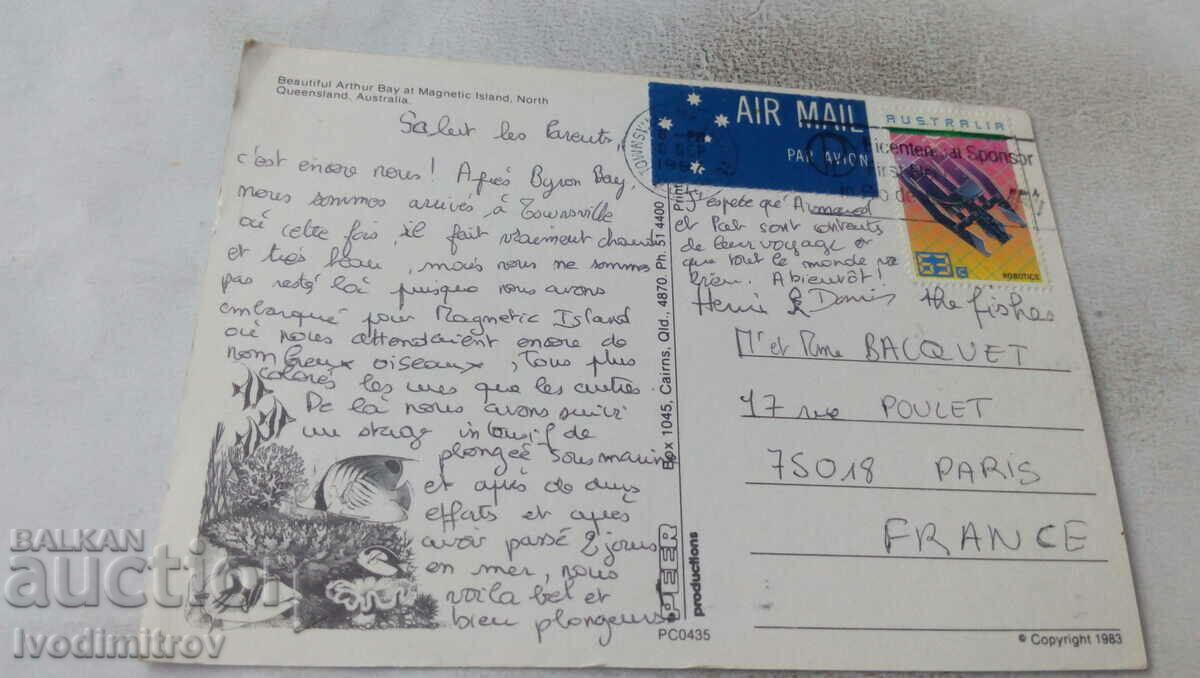 Beautiful Arthur Bay at Magnetic Island, North
Queensland, Australia.
Salut les Parents,
c'est encore nous! Après Byron Bay,
nous sommes arrivés à Townsville
où cette fois, il fait vraiment chaud
et très beau, mais nous ne sommes
pas resté là puisque nous avons
embarqué pour Magnetic Island
où nous attendaient encore de
nombreux oiseaux, tous plus
colorés les unes que les autres.
De là nous avons suivi
un stage intensif de
plongée sous marine
et après de durs
efforts et après
avoir passé 2 jours
en mer, nous
voila bel et
bien plongeurs
J'espère qu'Armand
et Pat sont contents
de leur voyage et
que tout le monde va
bien. A bientôt!
Henri & Domi
the fishes
AIR MAIL
PAR AVION
AUSTRALIA
Bicentennial Sponsor
63c
ROBOTICS
Mr et Mme BACQUET
17 rue POULET
75018 PARIS
FRANCE
Box 1045, Cairns, Qld., 4870. Ph. 51 4400
PEER
productions
PC0435
© Copyright 1983
BALKAN
auction
Ivodimitrov